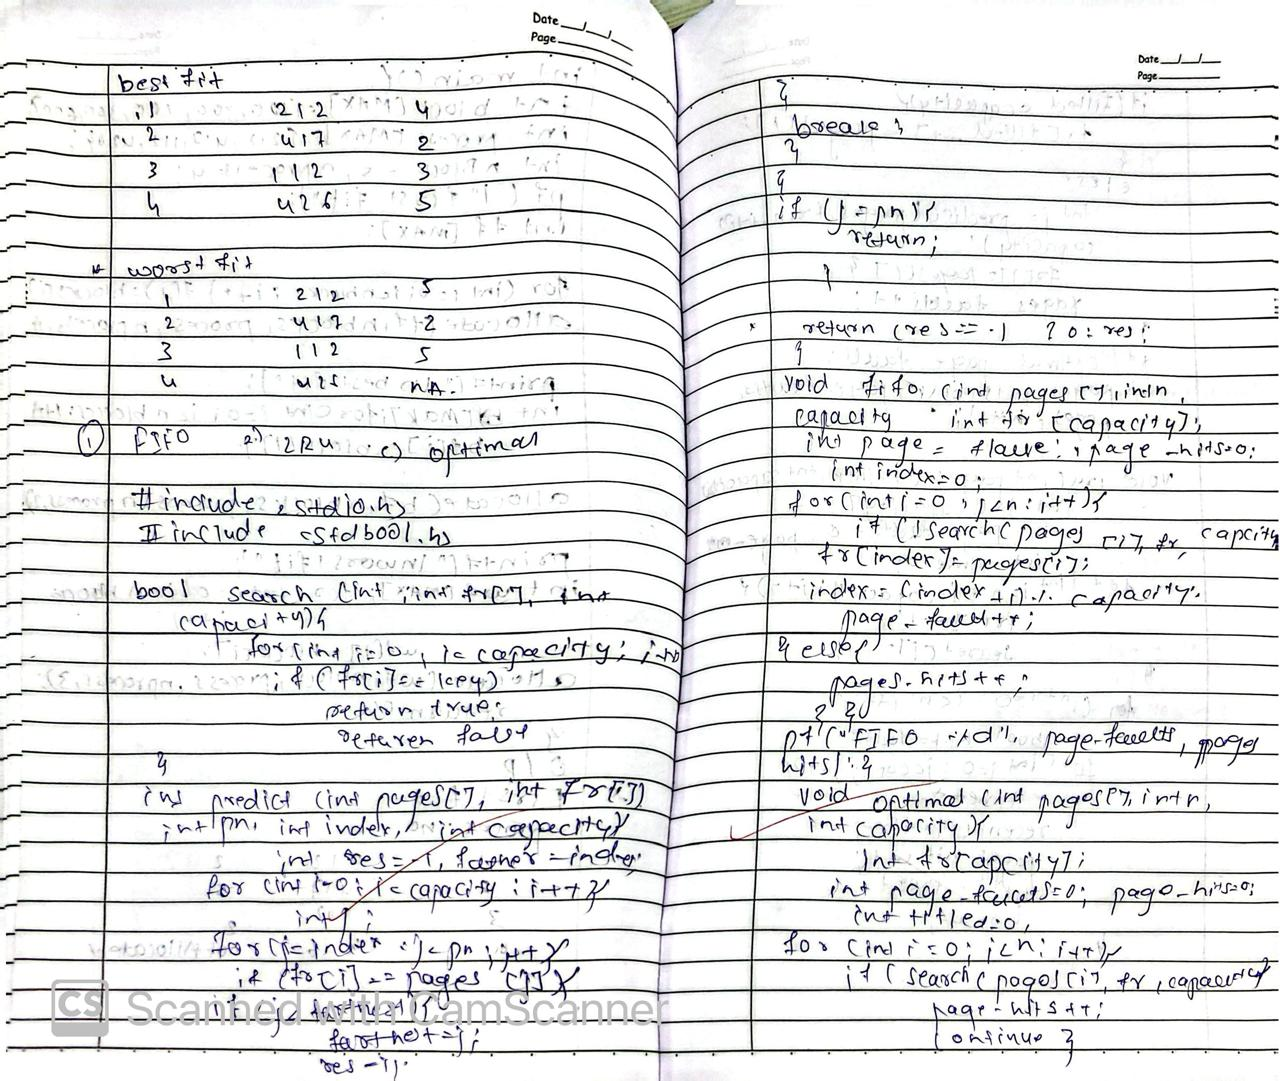 Date __/__/__
Page ____
best fit
1 212 4
2 417 2
3 112 3
4 426 5
* worst fit
1 212 5
2 417 2
3 112 5
4 425 NA.
① FIFO 2) LRU c) optimal
#include <stdio.h>
#include <stdbool.h>
bool search (int , int fr[], int
capacity){
for (int i=0, i< capacity; i++)
if (fr[i]== key)
return true;
return false
}
int predict (int pages[], int fr[])
int pn, int index, int capacity){
int res=-1, farther = index;
for (int i=0; i< capacity; i++){
int j;
for (j=index ; j< pn; j++){
if (fr[i] == pages [j]){
if j> farthest){
farthest =j;
res =i;
CS Scanned with CamScanner
Date __/__/__
Page ____
}
break;
}
}
if (j = pn){
return;
}
* return (res == -1 ? 0 : res;
}
void fifo (int pages [], int n,
capacity int fr [capacity];
int page = ; page-hits=0;
int index=0;
for (int i=0 ; i<n; i++){
if (!search (pages [i], fr, capcity
fr[index]= pages[i];
index = (index +1) % capacity.
page-fault++;
} else{
pages-hits++;
} }
pf ("FIFO %d", page-faults, page
hits); }
void optimal (int pages[], int n,
int capacity){
int fr[capcity];
int page-faults=0; page-hits=0;
int filled=0,
for (int i=0; i<n; i++){
if ( search( pages[i], fr, capacity)
page-hits++;
continue }